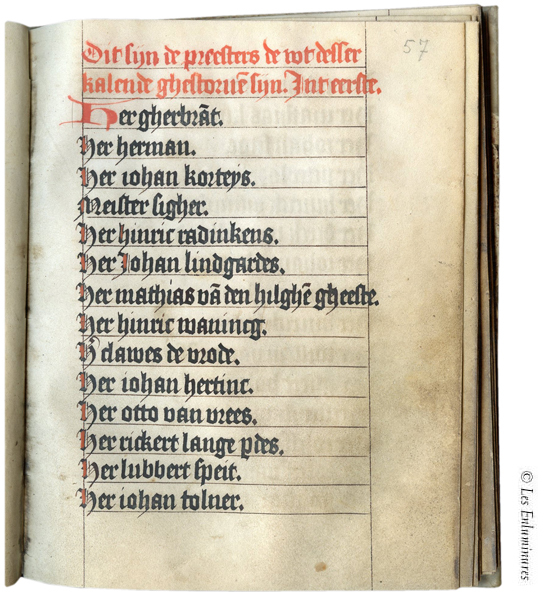 Dit sijn de preesters de vvt desser
kalende ghestoruē sijn. Int eerste.
Her gherbrāt.
Her herman.
Her iohan korteys.
Meister sigher.
Her hinric radinkens.
Her Johan lindgardes.
Her mathias vā den hilghē gheeste.
Her hinric wanincg.
H clawes de vrode.
Her iohan hertinc.
Her otto van vrees.
Her rickert lange pdes.
Her lubbert speit.
Her iohan tolner.
57
© Les Enluminures